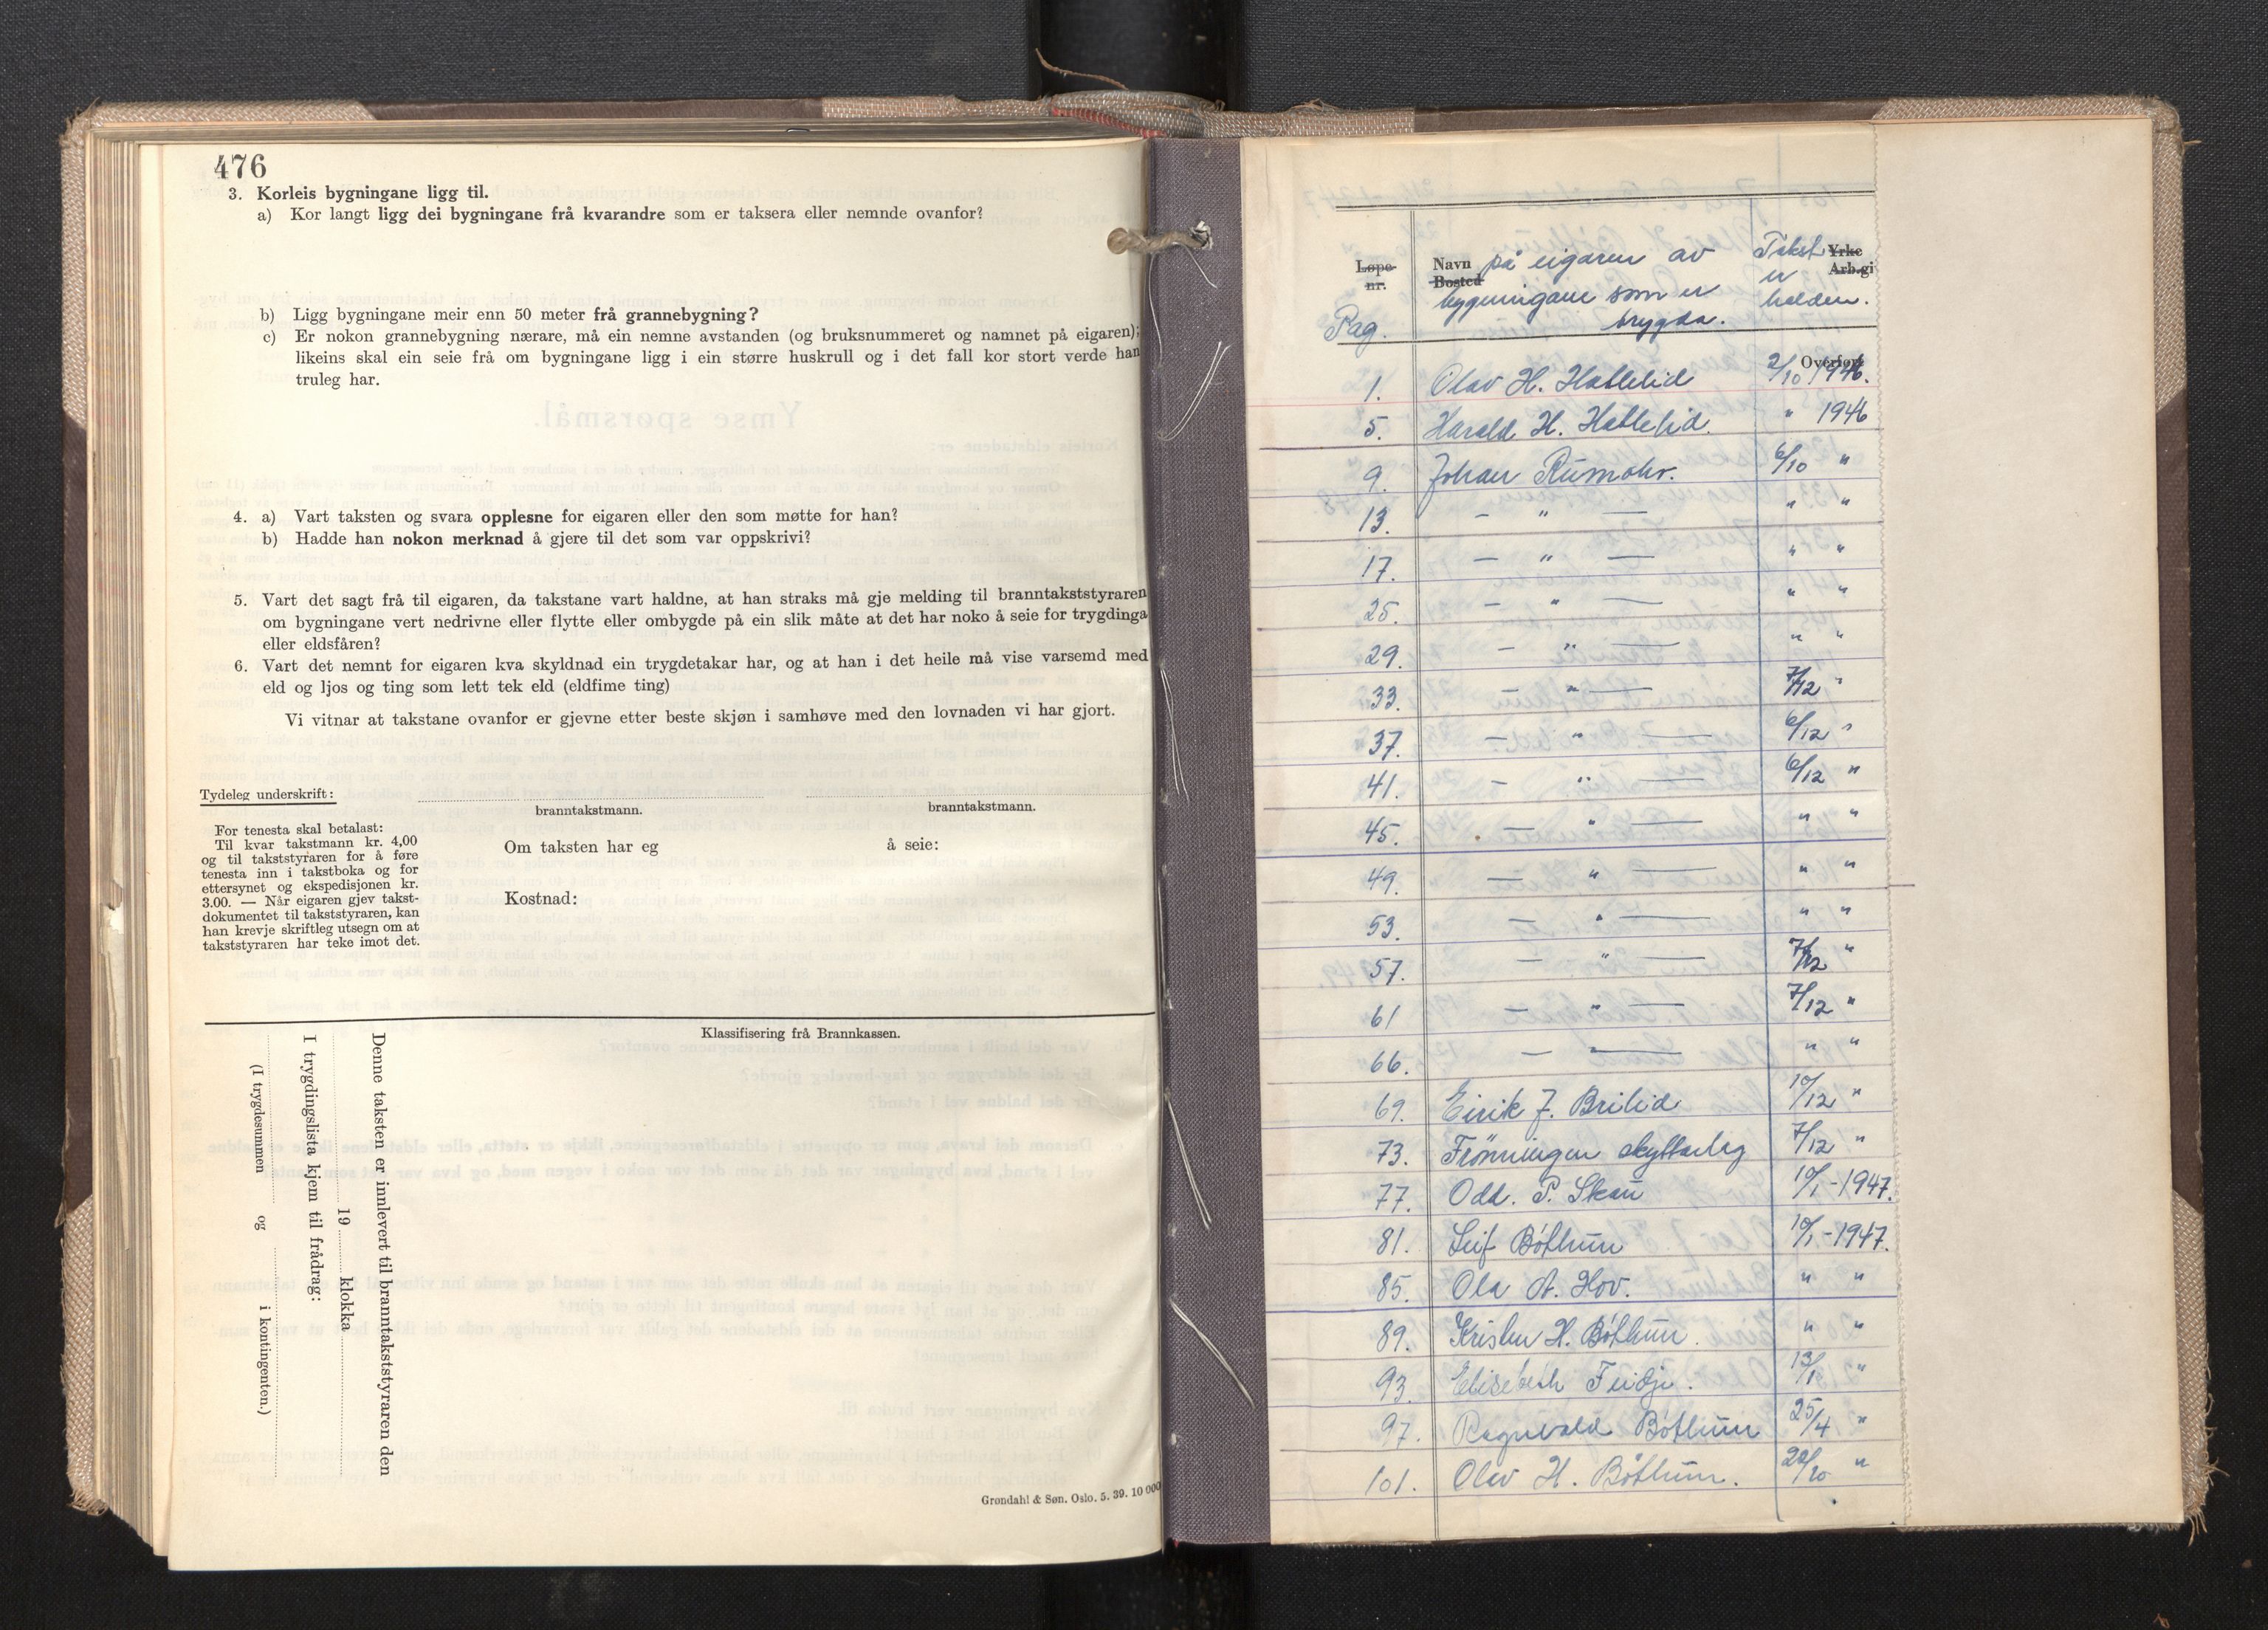 476
3. Korleis bygningane ligg til.
a) Kor langt ligg dei bygningane frå kvarandre som er taksera eller nemnde ovanfor?
b) Ligg bygningane meir enn 50 meter frå grannebygning?
c) Er nokon grannebygning nærare, må ein nemne avstanden (og bruksnummeret og namnet på eigaren);
likeins skal ein seie frå om bygningane ligg i ein større huskrull og i det fall kor stort verde han
truleg har.
4. a) Vart taksten og svara opplesne for eigaren eller den som møtte for han?
b) Hadde han nokon merknad å gjere til det som var oppskrivi?
5. Vart det sagt frå til eigaren, da takstane vart haldne, at han straks må gje melding til branntakststyraren
om bygningane vert nedrivne eller flytte eller ombygde på ein slik måte at det har noko å seie for trygdinga
eller eldsfåren?
6. Vart det nemnt for eigaren kva skyldnad ein trygdetakar har, og at han i det heile må vise varsemd med
eld og ljos og ting som lett tek eld (eldfime ting)
Vi vitnar at takstane ovanfor er gjevne etter beste skjøn i samhøve med den lovnaden vi har gjort.
Tydeleg underskrift:
branntakstmann. branntakstmann.
For tenesta skal betalast:
Til kvar takstmann kr. 4,00
og til takststyraren for å føre
tenesta inn i takstboka og for
ettersynet og ekspedisjonen kr.
3.00. — Når eigaren gjev takst-
dokumentet til takststyraren, kan
han krevje skriftleg utsegn om at
takststyraren har teke imot det.
Om taksten har eg å seie:
Kostnad:
Klassifisering frå Brannkassen.
Denne taksten er innlevert til branntakststyraren den
19 klokka
I trygdingslista kjem til frådrag:
(I trygdesummen og i kontingenten.)
Grøndahl & Søn. Oslo. 5. 39. 10 000
Løpe-nr. Navn Bosted på eigaren av bygningane som er trygda. Takst er halden. Yrke Arb.gi
Pag.
Overført
1. Olav H. Hatlelid 2/10 1946.
5. Harald H. Hatlelid. " 1946
9. Johan Rumohr. 6/10 "
13. — " — " "
17. — " — " "
25. — " — " "
29. — " — " "
33. — " — 7/12 "
37. — " — 6/12 "
41. — " — 6/12 "
45. — " — " "
49. — " — " "
53. — " — " "
57. — " — 7/12 "
61 — " — 7/12 "
66. — — " "
69. Eirik J. Brilid 10/12 "
73. Frønningen skyttarlag 7/12 "
77. Odd. P. Skau 10/1 - 1947.
81. Leif Bøthun 10/1 - 1947.
85. Ola A. Hov. " "
89. Kristen H. Bøthun. " "
93. Elisebeth Feidje. 13/1 "
97. Ragnvald Bøthun 25/4 "
101. Olav H. Bøthun. "